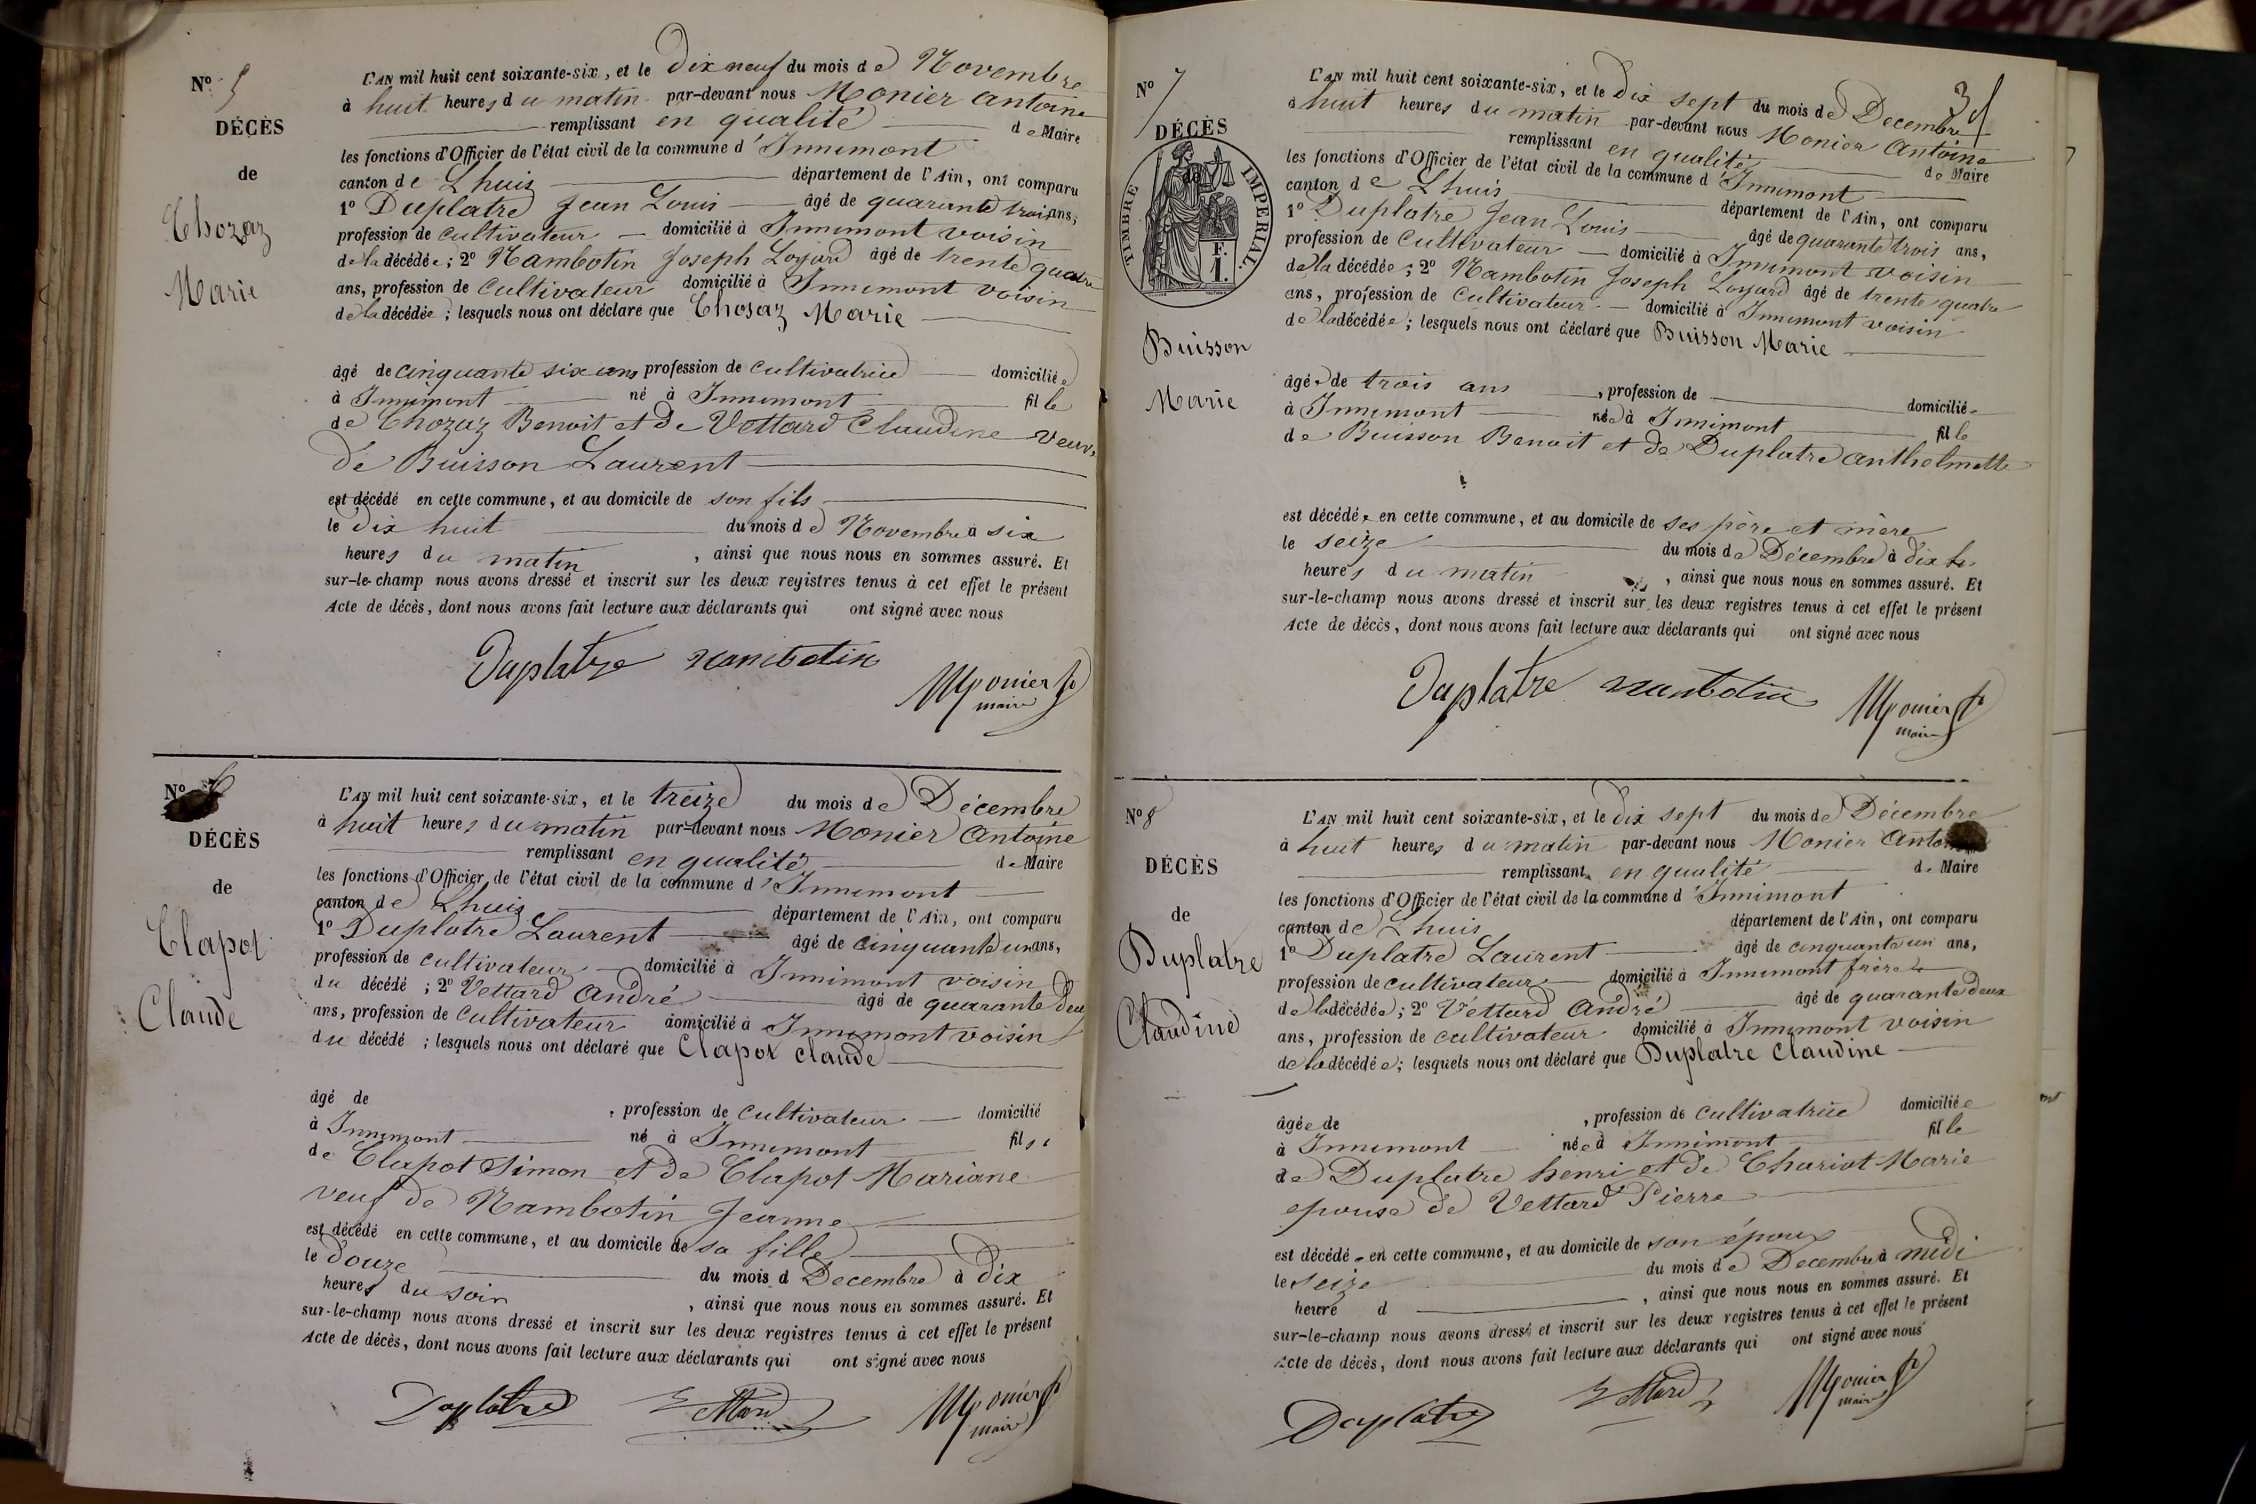 N° 5
DÉCÈS
de
Chozaz
Marie
L'AN mil huit cent soixante-six, et le dix neuf du mois de Novembre
à huit heures du matin par-devant nous Monier Antoine
remplissant en qualité de Maire
les fonctions d'Officier de l'état civil de la commune d'Innimont
canton de Lhuis département de l'Ain, ont comparu
1° Duplatre Jean Louis âgé de quarante trois ans,
profession de cultivateur domicilié à Innimont voisin
de la décédée; 2° Nambotin Joseph Loyard âgé de trente quatre
ans, profession de cultivateur domicilié à Innimont voisin
de la décédée; lesquels nous ont déclaré que Chosaz Marie
âgé de cinquante six ans profession de cultivatrice domiciliée
à Innimont né à Innimont fille
de Chozaz Benoit et de Vettard Claudine veuve
de Buisson Laurent
est décédé en cette commune, et au domicile de son fils
le dix huit du mois de Novembre à six
heures du matin, ainsi que nous nous en sommes assuré. Et
sur-le-champ nous avons dressé et inscrit sur les deux registres tenus à cet effet le présent
Acte de décès, dont nous avons fait lecture aux déclarants qui ont signé avec nous
Duplatre nambotin
Monier
maire
N° 6
DÉCÈS
de
Clapot
Claude
L'AN mil huit cent soixante-six, et le treize du mois de Décembre
à huit heures du matin par-devant nous Monier Antoine
remplissant en qualité de Maire
les fonctions d'Officier de l'état civil de la commune d'Innimont
canton de Lhuis département de l'Ain, ont comparu
1° Duplatre Laurent âgé de cinquante un ans,
profession de cultivateur domicilié à Innimont voisin
du décédé; 2° Vettard André âgé de quarante deux
ans, profession de cultivateur domicilié à Innimont voisin
du décédé; lesquels nous ont déclaré que Clapot Claude
âgé de , profession de cultivateur domicilié
à Innimont né à Innimont fils
de Clapot Simon et de Clapot Mariane
veuf de Nambotin Jeanne
est décédé en cette commune, et au domicile de sa fille
le douze du mois d Decembre à dix
heures du soir, ainsi que nous nous en sommes assuré. Et
sur-le-champ nous avons dressé et inscrit sur les deux registres tenus à cet effet le présent
Acte de décès, dont nous avons fait lecture aux déclarants qui ont signé avec nous
Duplatre Vettard Monier
maire
31
N° 7
DÉCÈS
de
TIMBRE IMPÉRIAL.
F.
1.
Buisson
Marie
L'AN mil huit cent soixante-six, et le dix sept du mois de Decembre
à huit heures du matin par-devant nous Monier Antoine
remplissant en qualité de Maire
les fonctions d'Officier de l'état civil de la commune d'Innimont
canton de Lhuis département de l'Ain, ont comparu
1° Duplatre Jean Louis âgé de quarante trois ans,
profession de cultivateur domicilié à Innimont voisin
de la décédée; 2° Nambotin Joseph Loyard âgé de trente quatre
ans, profession de cultivateur domicilié à Innimont voisin
de la décédée; lesquels nous ont déclaré que Buisson Marie
âgée de trois ans, profession de domiciliée
à Innimont née à Innimont fille
de Buisson Benoit et de Duplatre anthelmette
est décédée en cette commune, et au domicile de ses père et mère
le seize du mois de Décembre à dix
heures du matin, ainsi que nous nous en sommes assuré. Et
sur-le-champ nous avons dressé et inscrit sur les deux registres tenus à cet effet le présent
Acte de décès, dont nous avons fait lecture aux déclarants qui ont signé avec nous
Duplatre nambotin Monier
maire
N° 8
DÉCÈS
de
Duplatre
Claudine
L'AN mil huit cent soixante-six, et le dix sept du mois de Décembre
à huit heures du matin par-devant nous Monier
remplissant en qualité de Maire
les fonctions d'Officier de l'état civil de la commune d'Innimont
canton de Lhuis département de l'Ain, ont comparu
1° Duplatre Laurent âgé de cinquante un ans,
profession de cultivateur domicilié à Innimont frère
de la décédée; 2° Vettard André âgé de quarante deux
ans, profession de cultivateur domicilié à Innimont voisin
de la décédée; lesquels nous ont déclaré que Duplatre Claudine
âgée de , profession de cultivatrice domiciliée
à Innimont née à Innimont fille
de Duplatre henri et de Chariot Marie
epouse de Vettard Pierre
est décédée en cette commune, et au domicile de son époux
le seize du mois de Decembre à midi
heure d , ainsi que nous nous en sommes assuré. Et
sur-le-champ nous avons dressé et inscrit sur les deux registres tenus à cet effet le présent
Acte de décès, dont nous avons fait lecture aux déclarants qui ont signé avec nous
Duplatre Vettard Monier
maire